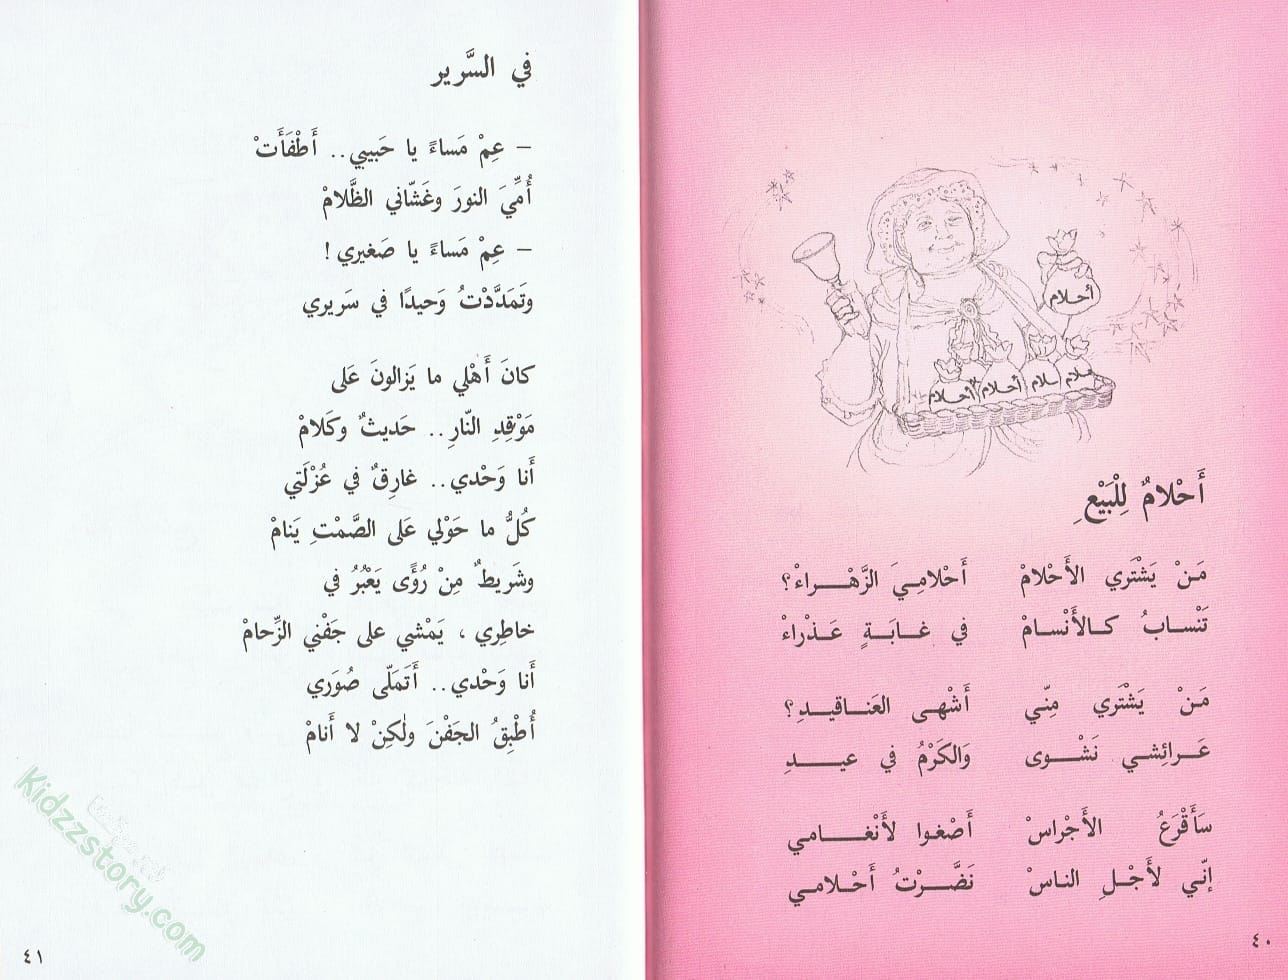 أحلام
أحلام
أحلام
سلام
أَحْلامٌ لِلْبَيْعِ
مَنْ يَشْتَري الأَحْلامْ أَحْلامِيَ الزَّهْـــراءْ؟
تَنْســابُ كــالأَنْســامْ في غــابَــةٍ عَــذْراءْ
مَــنْ يَشْتَري مِنّـي أَشْهـى العَنــاقيــدِ؟
عَــرائِشـي نَشْــوى وَالكَرْمُ في عيـــدِ
سَأَقْرَعُ الأَجْراسْ أَصْغوا لأَنْغــــامـي
إنّـي لأَجْــلِ النـاسْ نَضَّـــرْتُ أَحْــلامـي
٤٠
في السَّرير
– عِمْ مَساءً يا حَبيبي.. أَطْفَأَتْ
أُمِّيَ النورَ وغَشّاني الظَّلامْ
– عِمْ مَساءً يا صَغيري !
وتَمَدَّدْتُ وَحيدًا في سَريري
كانَ أَهْلي ما يَزالونَ عَلى
مَوْقِدِ النّارِ.. حَديثٌ وكَلامْ
أَنا وَحْدي.. غارِقٌ في عُزْلَتي
كُلُّ ما حَوْلي عَلى الصَّمْتِ يَنامْ
وشَريطٌ مِنْ رُؤًى يَعْبُرُ في
خاطِري ، يَمْشي على جَفْني الزِّحامْ
أَنا وَحْدي.. أَتَمَلّى صُوَري
أُطْبِقُ الجَفْنَ ولٰكِنْ لا أَنامْ
٤١
Kidzzstory.com